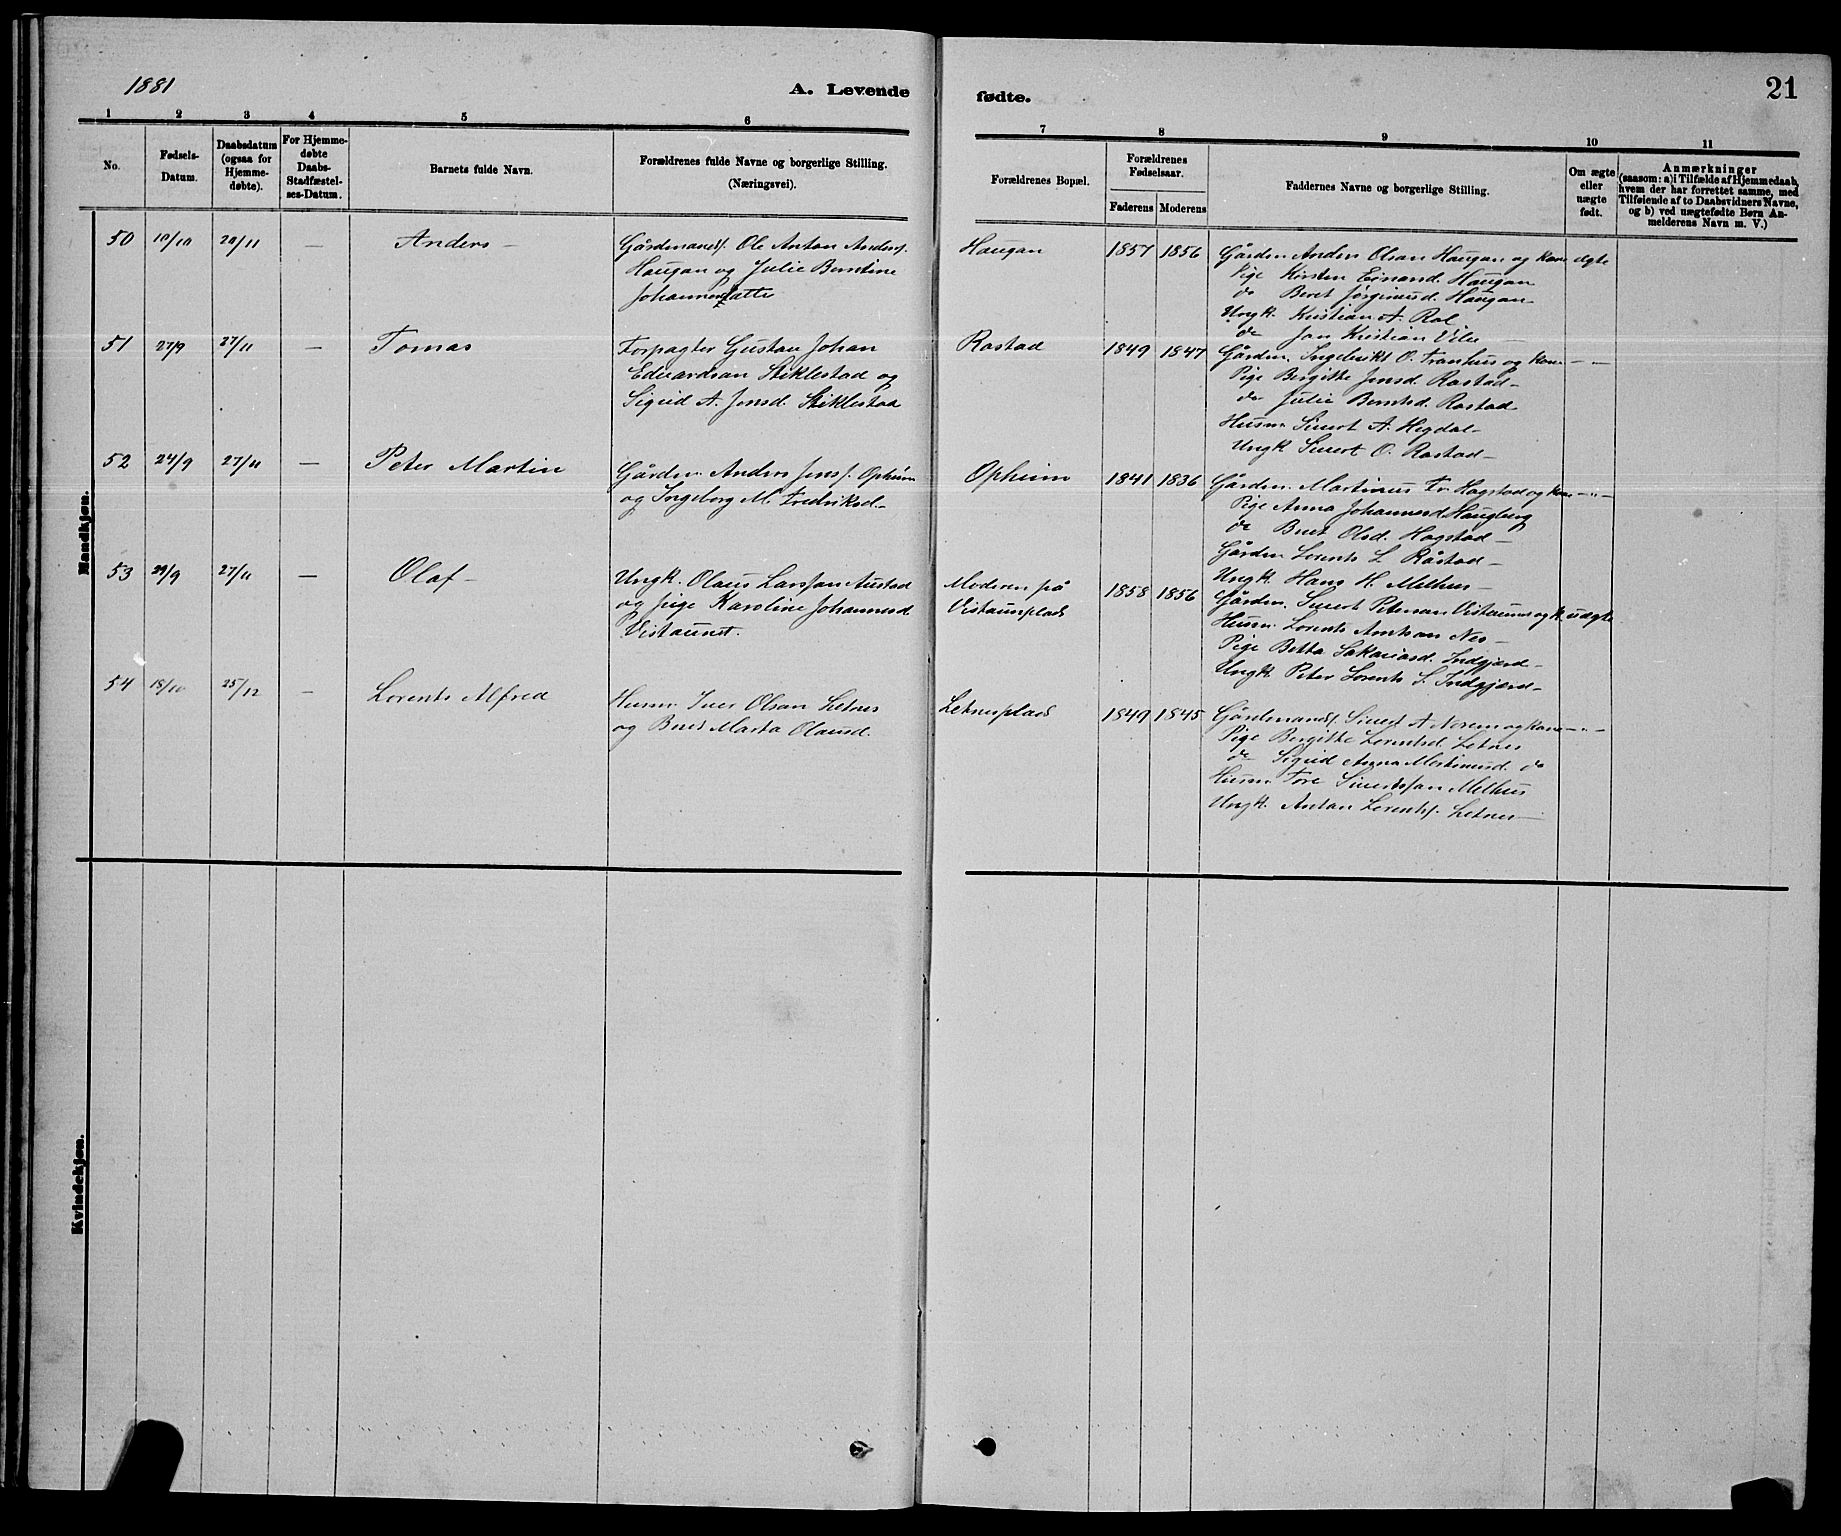 1881
A. Levende fødte.
21
1 2 3 4 5 6 7 8 9 10 11
No.
Fødsels-Datum.
Daabsdatum (ogsaa for Hjemme-døbte).
For Hjemme-døbte Daabs-Stadfæstel-ses-Datum.
Barnets fulde Navn.
Forældrenes fulde Navne og borgerlige Stilling. (Næringsvei).
Forældrenes Bopæl.
Forældrenes Fødselsaar.
Faderens Moderens
Faddernes Navne og borgerlige Stilling.
Om ægte eller uægte født.
Anmærkninger (saasom: a) i Tilfælde af Hjemmedaab, hvem der har forrettet samme, med Tilføiende af to Daabsvidners Navne, og b) ved uægtefødte Børn Anmelderens Navn m. V.)
Mandkjøn.
50 10/10 20/11 — Anders —
Gårdmands. Ole Anton Anders.
Haugan og Julie Berntine
Johannesdatte
Haugan 1857 1856
Gårdm Anders Olsan Haugan og kone ægte
Pige Kirsten Einarsd. Haugan
do Beret Jørginusd. Haugan
Ungk. Kristian A. Rol
do Jon Kristian
51 27/9 27/11 — Tomas
Forpagter Gustav Johan
Edvardsan Stiklestad og
Sigrid A. Jensd. Stiklestad
Rostad 1849 1847
Gårdm. Ingebrikt O. Tranhus og kone — „ —
Pige Bergitte Jensd. Rostad —
do Julie Berntsd. Rostad
Husm Sivert A. Hegdal —
Ungk Sivert O. Rostad —
52 24/9 27/11 — Peter Martin
Gårdm. Anders Jens. Opheim
og Ingeborg M. Fredriksd. —
Opheim 1841 1836
Gårdm. Martinus Fr. Hagstad og kone — „ —
Pige Anna Johannesd Haugberg
do Beret Olsd. Hagstad —
Gårdm Lorents L. Råstad —
Ungk Hans H. Melhus —
53 29/9 27/11 — Olaf —
Ungk. Olaus Larssan Austad
og pige Karoline Johannesd.
Vistaunet.
Moderen på
Vistaunplads
1858 1856
Gårdm. Sivert Petersan Vistaunes og k. uægte
Husm. Lorents Arntsan Nes —
Pige Betta Sakariasd. Indgjærd —
Ungk Peter Lorents S. Indgjærd —
54 18/10 25/12 — Lorents Alfred
Husm. Iver Olsan Letnes
og Beret Marta Olausd.
Letnesplads 1849 1845
Gårdmands. Sivert A Norem og kone — „ —
Pige Bergitte Lorentsd. Letnes
do Sigrid Anna Martinusd. do
Husm Tore Sivertssan Melhus
Ungk. Antan Lorents. Letnes —
Kvindekjøn.